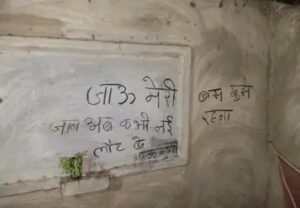 जाऊ मेरी
जान अब कभी नई
लौट के
बस खुस
रहना